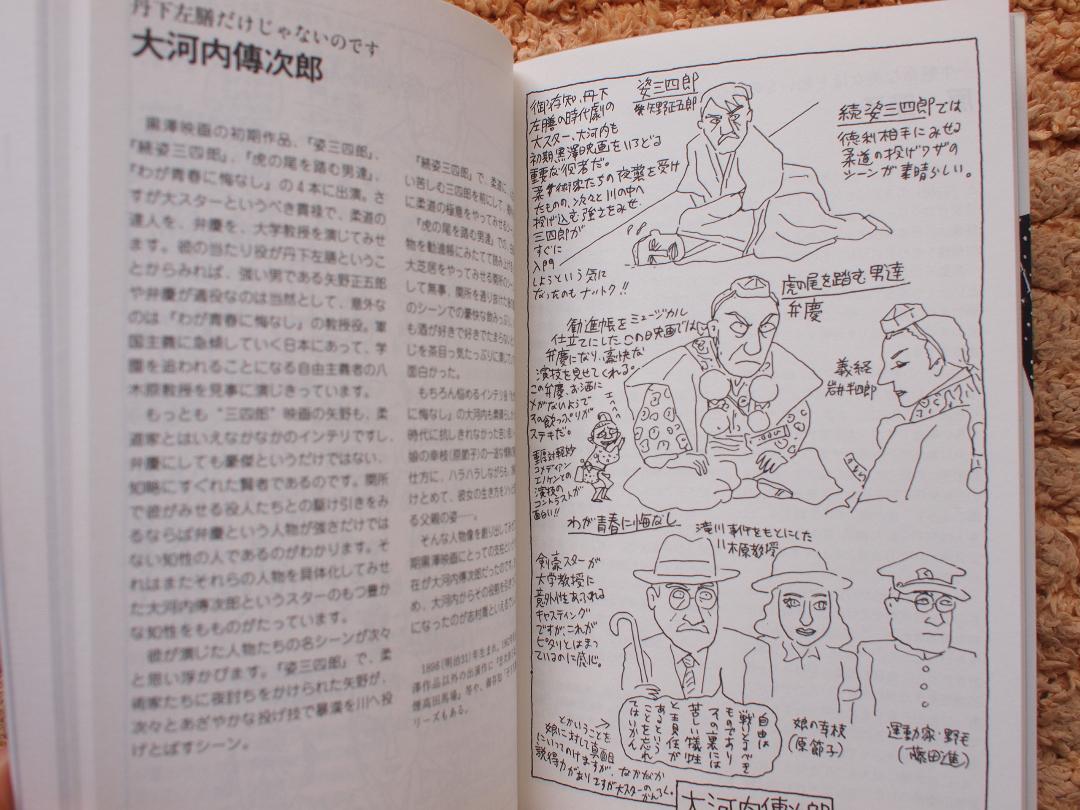 丹下左膳だけじゃないのです
大河内傳次郎
黒澤映画の初期作品、『姿三四郎』、
『続姿三四郎』、『虎の尾を踏む男達』、
『わが青春に悔なし』の4本に出演。さ
すが大スターというべき貫禄で、柔道の
達人を、弁慶を、大学教授を演じてみせ
ます。彼の当たり役が丹下左膳というこ
とからみれば、強い男である矢野正五郎
や弁慶が適役なのは当然として、意外な
のは『わが青春に悔なし』の教授役。軍
国主義に急傾していく日本にあって、学
園を追われることになる自由主義者の八
木原教授を見事に演じきっています。
もっとも“三四郎”映画の矢野も、柔
道家とはいえなかなかのインテリですし、
弁慶にしても豪傑というだけではない、
知略にすぐれた賢者であるのです。関所
で彼がみせる役人たちとの駆け引きをみ
るならば弁慶という人物が強さだけでは
ない知性の人であるのがわかります。そ
れはまたそれらの人物を具体化してみせ
た大河内傳次郎というスターのもつ豊か
な知性をもものがたっています。
彼が演じた人物たちの名シーンが次々
と思い浮かびます。『姿三四郎』で、柔
術家たちに夜討ちをかけられた矢野が、
次々とあざやかな投げ技で暴漢を川へ投
げとばすシーン。
『続姿三四郎』で、柔道に
い苦しむ三四郎を前にして、
に柔道の極意をやってみせるシー
『虎の尾を踏む男達』での、
物を勧進帳にみたてて読み上げる
大芝居をやってみせる関所のシー
して無事、関所を通り抜けた後の
のシーンでの豪快な飲みっぷり。
も酒が好きで好きでたまらないと
じを茶目っ気たっぷりに表して
面白かった。
もちろん悩めるインテリ役『わが
に悔なし』の大河内も素晴らし
時代に抗しきれなかった苦い思い
娘の幸枝（原節子）の一途な情熱の
仕方に、ハラハラしながらも、
けとめて、彼女の生き方を
る父親の姿──。
そんな人物像を創り出してみせ
期黒澤映画にとっての支柱という
在が大河内傳次郎だったのです。
め、大河内からその役割を引き
になったのが志村喬といえる
1898(明治31)年生まれ。1962年
澤作品以外の出演作に
煙高田馬場』等や、
リーズもある。
御存知、丹下
左膳の時代劇の
大スター、大河内も
初期黒澤映画をいろどる
重要な役者だ。
柔術家たちの夜襲を受け
たものの、次々と川の中へ
投げ込む強さをみせ、
三四郎が
すぐに
入門
しようという気に
なったのもナットク!!
姿三四郎
矢野正五郎
続姿三四郎では
徳利相手にみせる
柔道の投げワザの
シーンが素晴らしい。
虎の尾を踏む男達
弁慶
勧進帳をミュージカル
仕立てにしたこの映画では
弁慶になり、豪快な
演技を見せてくれる。
この弁慶、お酒に
メがないようで
その飲っぷりが
ステキだ。
重厚対軽妙
コメディアン
エノケンとの
演技の
コントラストが
面白い!!
義経
岩井半四郎
わが青春に悔なし
滝川事件をもとにした
八木原教授
剣豪スターが
大学教授に
意外性あふれる
キャスティング
ですが、これが
ピタリとはまっ
ているのに感心。
自由は
戦いとるべき
ものであり
その裏には
苦しい犠牲
と責任が
あるという
ことを忘れ
てはいかん
とかいうことを
娘に対して真面目
にいってのけますが、なかなか
説得力がありますが大スターのかんろく。
娘の幸枝
（原節子）
運動家・野毛
（藤田進）
大河内傳次郎